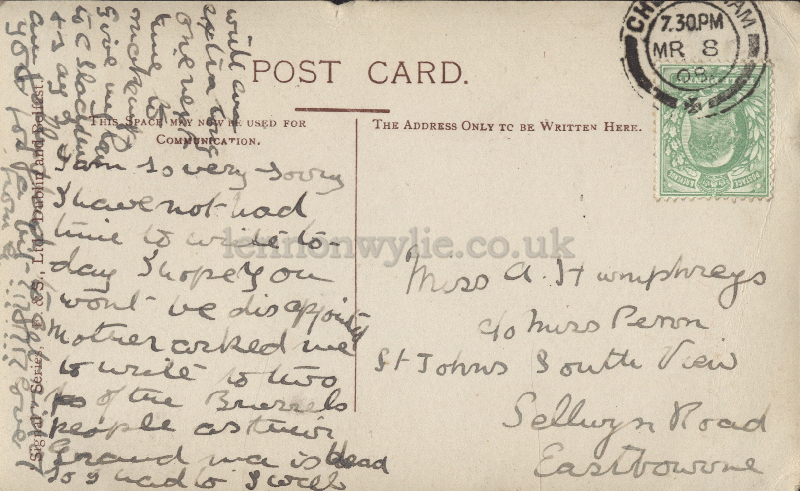 POST CARD.
THIS SPACE MAY NOW BE USED FOR
COMMUNICATION.
THE ADDRESS ONLY TO BE WRITTEN HERE.
7.30PM
MR 8
08
I am so very sorry
I have not had
time to write to-
day I hope you
wont be disappointed
Mother asked me
to write to two
of the Brussels
people as their
Grand ma is dead
so I had to I will
will
extra long
one next
time to
make up
Give my love
to
Miss A. Humphreys
c/o Miss Penn
St Johns South View
Sellwyn Road
Eastbourne
Signal Series, & S., Ltd., Dublin and Belfast.
lennonwylie.co.uk